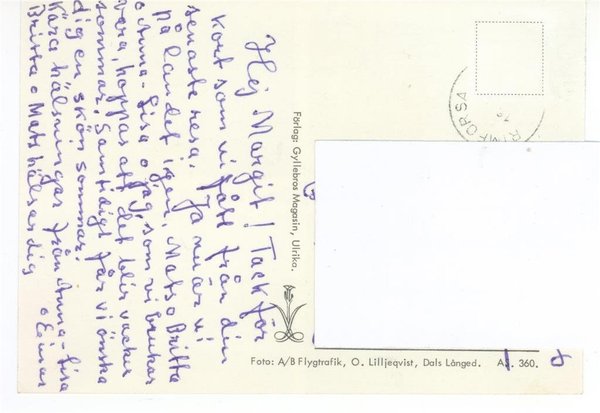 Hej Margit! Tack för
kort som vi fått från din
senaste resa. Ja nu är vi
på landet igen, Mats o Britta
o Anna-Lisa o jag, som vi brukar
vara, hoppas att det blir vacker
sommar. Samtidigt får vi önska
dig en skön sommar.
Kära hälsningar från Anna-Lisa
o Einar
Britta o Mats hälsar dig
Förlag: Gyllebros Magasin, Ulrika.
RIMFORSA
Foto: A/B Flygtrafik, O. Lilljeqvist, Dals Långed.
360.